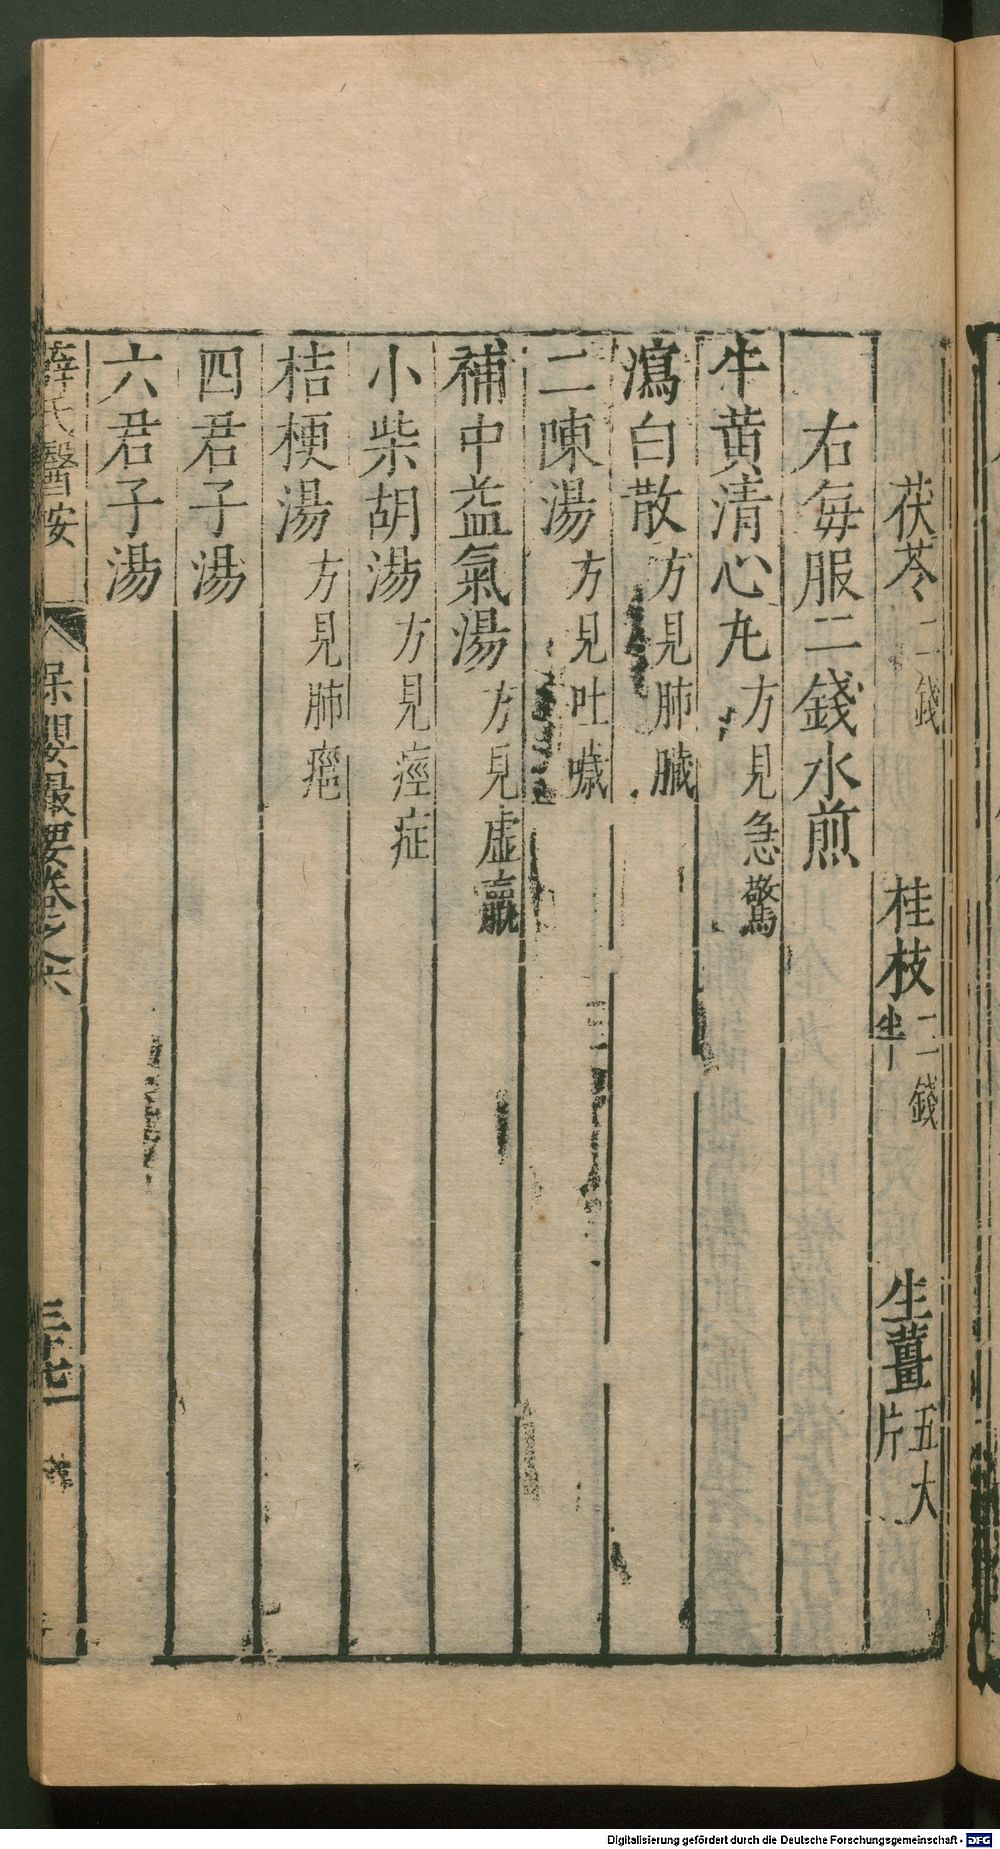 茯苓二錢 桂枝二錢半 生薑五大片
右每服二錢水煎
牛黃清心丸方見急驚
瀉白散方見肺臟
二陳湯方見吐噦
補中益氣湯方見虛羸
小柴胡湯方見痙症
桔梗湯方見肺癰
四君子湯
六君子湯
薛氏醫按 保嬰撮要卷之六 三十七
Digitalisierung gefördert durch die Deutsche Forschungsgemeinschaft - DFG